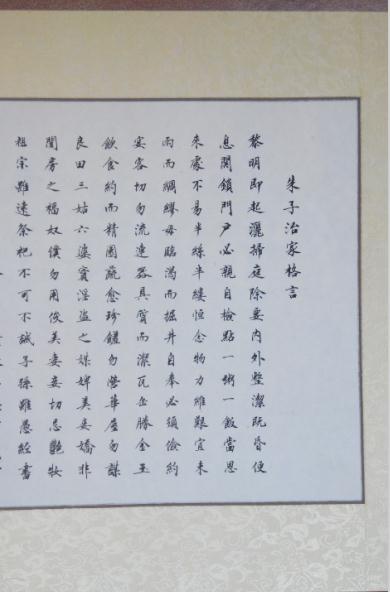 朱子治家格言
黎明即起灑掃庭除要內外整潔既昏便
息關鎖門戶必親自檢點一粥一飯當思
來處不易半絲半縷恒念物力維艱宜未
雨而綢繆毋臨渴而掘井自奉必須儉約
宴客切勿流連器具質而潔瓦缶勝金玉
飲食約而精園蔬愈珍饈勿營華屋勿謀
良田三姑六婆實淫盜之媒婢美妾嬌非
閨房之福奴僕勿用俊美妻妾切忌艷妝
祖宗雖遠祭祀不可不誠子孫雖愚經書